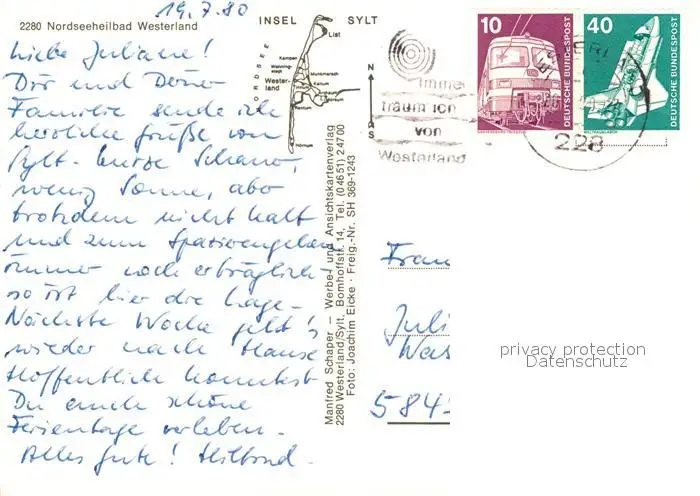 19.7.80
2280 Nordseeheilbad Westerland
INSEL SYLT
Liebe Juliane!
Dir und Deiner
Familie sende ich
herzliche Grüße von
Sylt. Kurze Schauer,
wenig Sonne, aber
trotzdem nicht kalt
und zum Spazierengehen
immer noch erträglich -
so ist hier die Lage.
Nächste Woche geht's
wieder nach Hause
Hoffentlich konntest
Du auch schöne
Ferientage verleben.
Alles Gute!
NORDSEE
List
Kampen
Wenningstedt
Westerland
Munkmarsch
Keitum
Rantum
Hörnum
N
S
Manfred Schaper - Werbe- und Ansichtskartenverlag
2280 Westerland/Sylt, Bomhoffstr. 14, Tel. (04651) 24700
Foto: Joachim Eicke · Freig.-Nr. SH 369-1243
Immer
träum ich
von
Westerland
10
DEUTSCHE BUNDESPOST
40
DEUTSCHE BUNDESPOST
WELTRAUMLABOR
228
Frau
Juli
584
privacy protection
Datenschutz